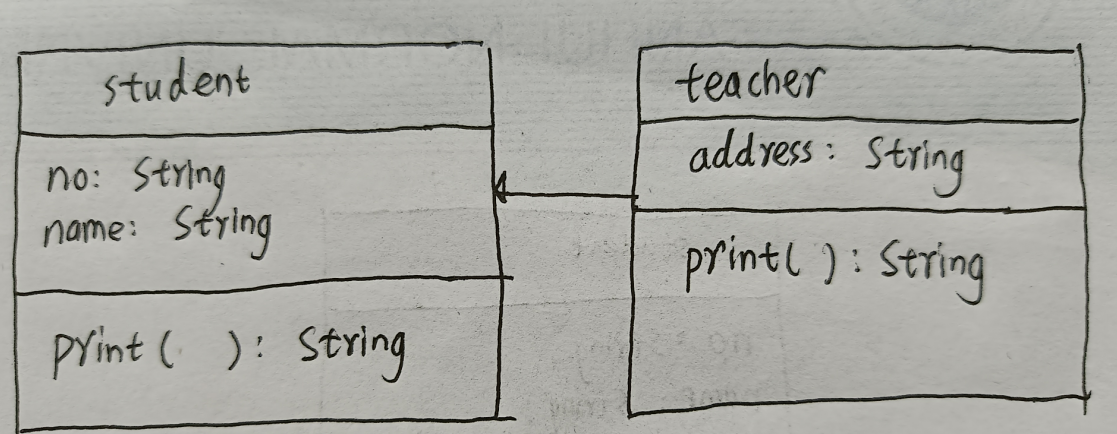 student
no: String
name: String
print( ): String
teacher
address: String
print( ): String